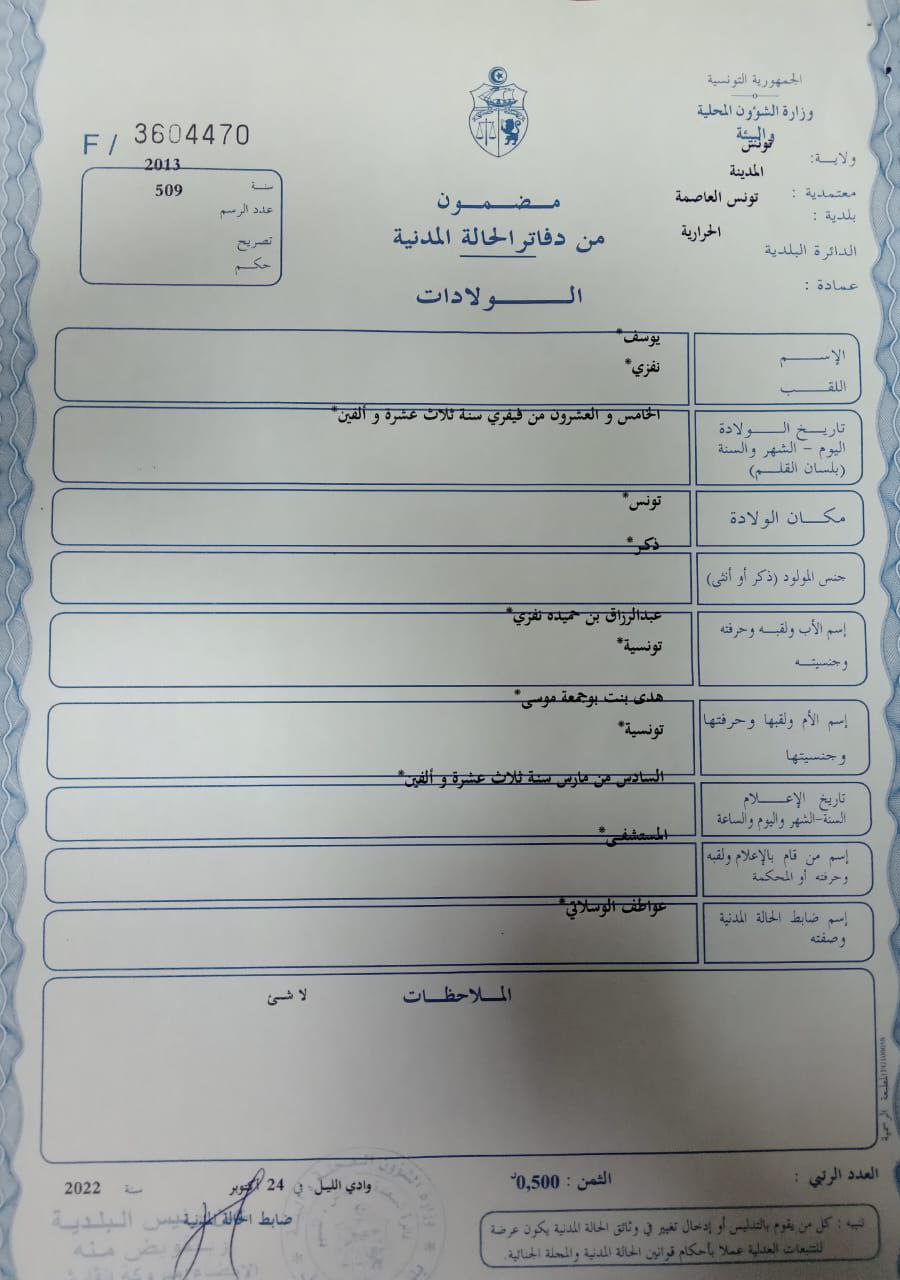 الجمهورية التونسية
وزارة الشؤون المحلية
والبيئة
ولاية: تونس
المدينة
معتمدية : تونس العاصمة
بلدية :
الحرارية
الدائرة البلدية
عمادة :
F / 3604470
2013
سنة
509
عدد الرسم
تصريح
حكم
مضمون
من دفاتر الحالة المدنية
الولادات
يوسف*
الإسم
نفزي*
اللقب
الخامس و العشرون من فيفري سنة ثلاث عشرة و ألفين*
تاريخ الولادة
اليوم - الشهر والسنة
(بلسان القلم)
تونس*
مكان الولادة
ذكر*
جنس المولود (ذكر أو أنثى)
عبدالرزاق بن حميده نفزي*
إسم الأب ولقبه وحرفته
تونسية*
وجنسيته
هدى بنت بوجمعة موسى*
إسم الأم ولقبها وحرفتها
تونسية*
وجنسيتها
السادس من مارس سنة ثلاث عشرة و ألفين*
تاريخ الإعلام
السنة-الشهر واليوم والساعة
المستشفى*
إسم من قام بالإعلام ولقبه
وحرفته أو المحكمة
عواطف الوسلاتي*
إسم ضابط الحالة المدنية
وصفته
الملاحظات
لا شئ
المطبعة الرسمية
العدد الرتبي :
الثمن : 0,500د
وادي الليل في 24 أكتوبر سنة 2022
ضابط الحالة المدنية
رئيس البلدية
وبتفويض منه
تنبيه : كل من يقوم بالتدليس أو إدخال تغيير في وثائق الحالة المدنية يكون عرضة
للتتبعات العدلية عملا بأحكام قوانين الحالة المدنية والمجلة الجنائية.